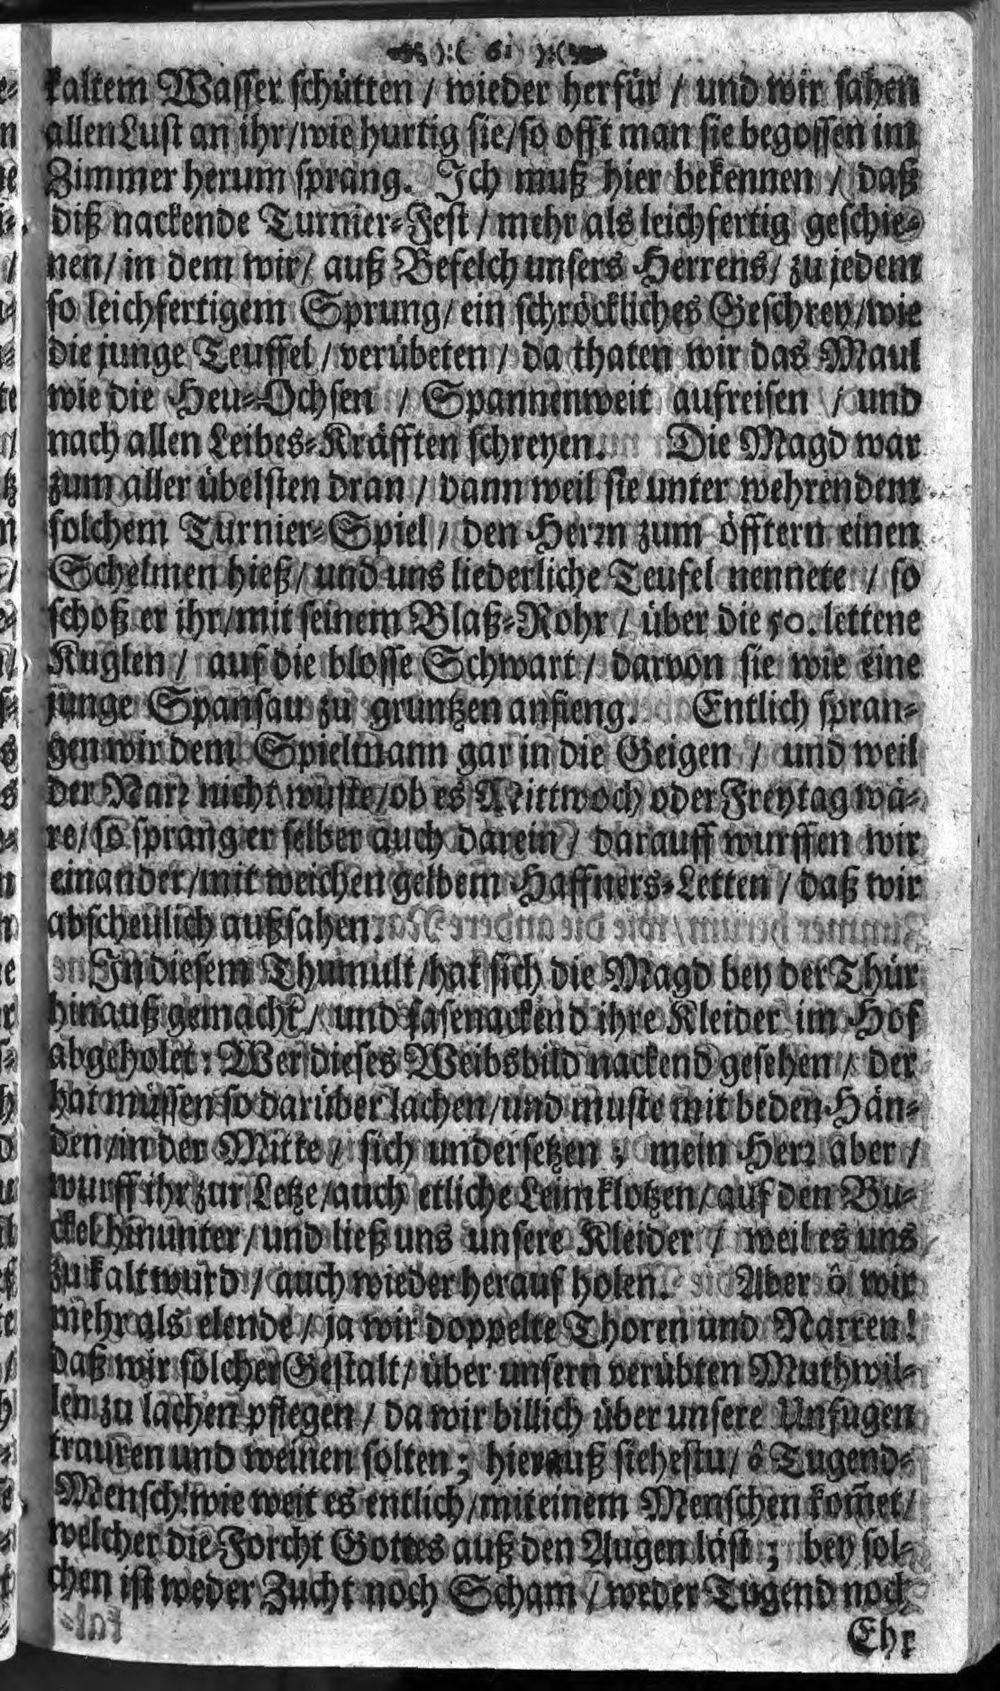 61
kaltem Wasser schütten / wieder herfür / und wir sahen
allen Lust an ihr / wie hurtig sie / so offt man sie begossen im
Zimmer herum sprang. Ich muß hier bekennen / daß
diß nackende Turnier-Fest / mehr als leichfertig geschie-
nen / in dem wir / auß Befelch unsers Herrens / zu jedem
so leichfertigem Sprung / ein schröckliches Geschrey / wie
die junge Teuffel / verübeten / da thaten wir das Maul
wie die Heu-Ochsen / Spannenweit aufreisen / und
nach allen Leibes-Kräfften schreyen. Die Magd war
zum aller übelsten dran / dann weil sie unter wehrendem
solchem Turnier-Spiel / den Herrn zum öfftern einen
Schelmen hieß / und uns liederliche Teufel nennete / so
schoß er ihr / mit seinem Blaß-Rohr / über die 50. lettene
Kuglen / auf die blosse Schwart / darvon sie wie eine
junge Spansau zu gruntzen anfieng. Entlich spran-
gen wir dem Spielmann gar in die Geigen / und weil
der Narr nicht wuste / ob es Mittwoch oder Freytag wä-
re / so sprang er selber auch darein / darauff wurffen wir
einander / mit weichen gelbem Haffners-Letten / daß wir
abscheulich außsahen.
In diesem Thumult / hat sich die Magd bey der Thür
hinauß gemacht / und fasenackend ihre Kleider im Hof
abgeholet: Wer dieses Weibsbild nackend gesehen / der
hat müssen so darüber lachen / und muste mit beden Hän-
den / in der Mitte / sich undersetzen ; mein Herr aber /
wurff ihr zur Letze / auch etliche Leimklotzen / auf den Bu-
ckel hinunter / und ließ uns unsere Kleider / weil es uns
zu kalt wurd / auch wieder herauf holen. Aber ô wir
mehr als elende / ja wir doppelte Thoren und Narren!
daß wir solcher Gestalt / über unsern verübten Muthwil-
len zu lachen pflegen / da wir billich über unsere Unfugen
trauren und weinen solten ; hierauß siehestu / ô Tugend-
Mensch! wie weit es entlich / mit einem Menschen kom̃et /
welcher die Forcht Gottes auß den Augen läst ; bey sol-
chen ist weder Zucht noch Scham / weder Tugend noch
Ehr